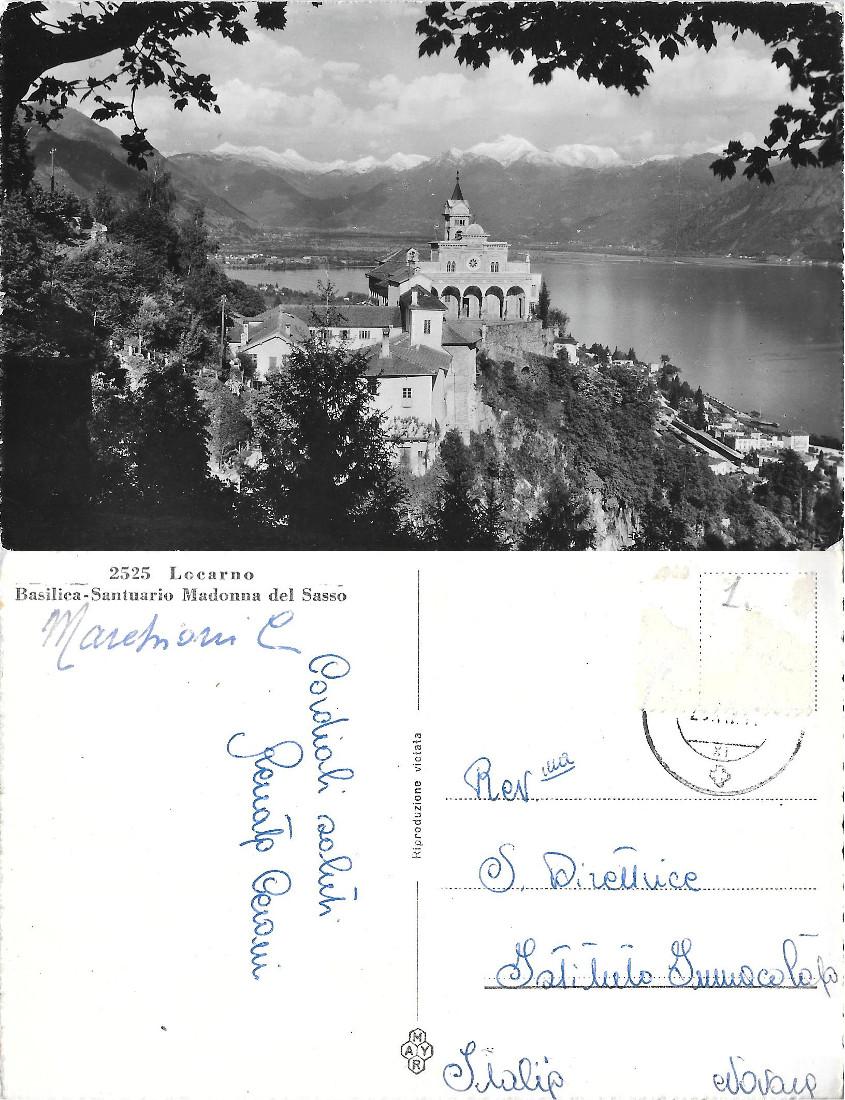 2525 Locarno
Basilica-Santuario Madonna del Sasso
Marchioni C
Cordiali saluti
Renato
Riproduzione vietata
MAYR
1.
XI
Rev.ma
S. Direttrice
Istituto Immacolata
Italia Novara